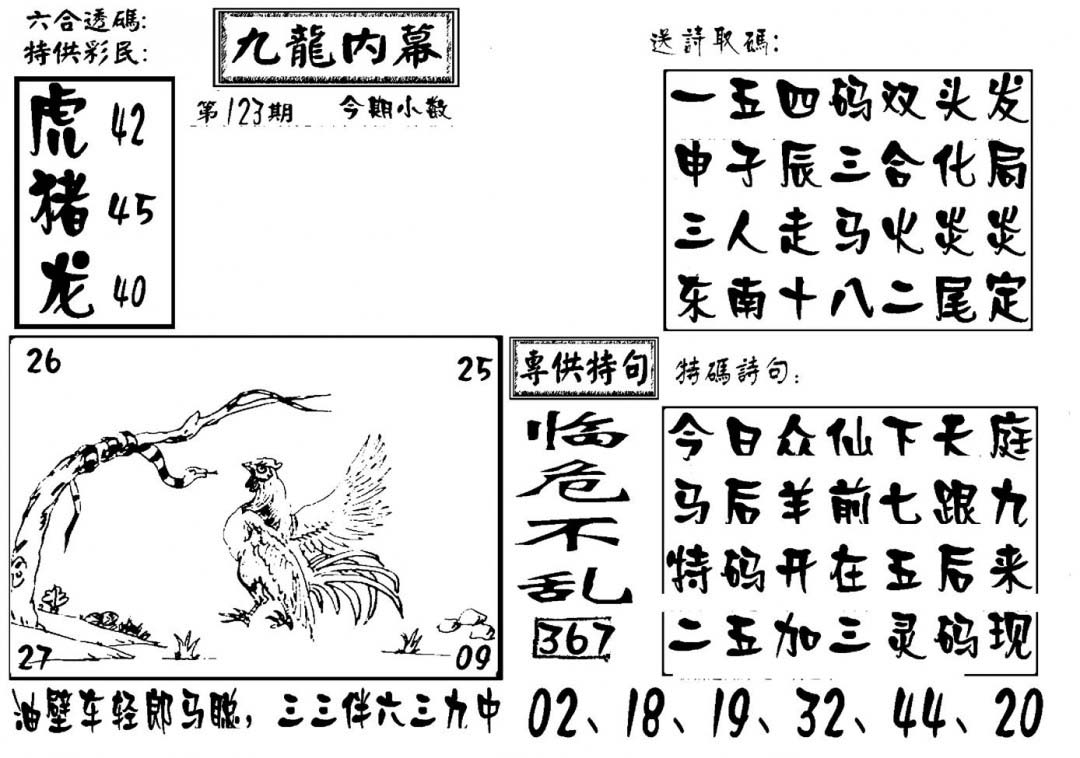 六合透碼:
特供彩民:
九龍内幕
第123期 今期小数
虎 42
猪 45
龙 40
送詩取碼:
一五四码双头发
申子辰三合化局
三人走马火炎炎
东南十八二尾定
26
25
27
09
專供特句
临危不乱
367
特碼詩句:
今日众仙下天庭
马后羊前七跟九
特码开在五后来
二五加三灵码现
油壁车轻郎马骢，三三伴六三九中
02、18、19、32、44、20